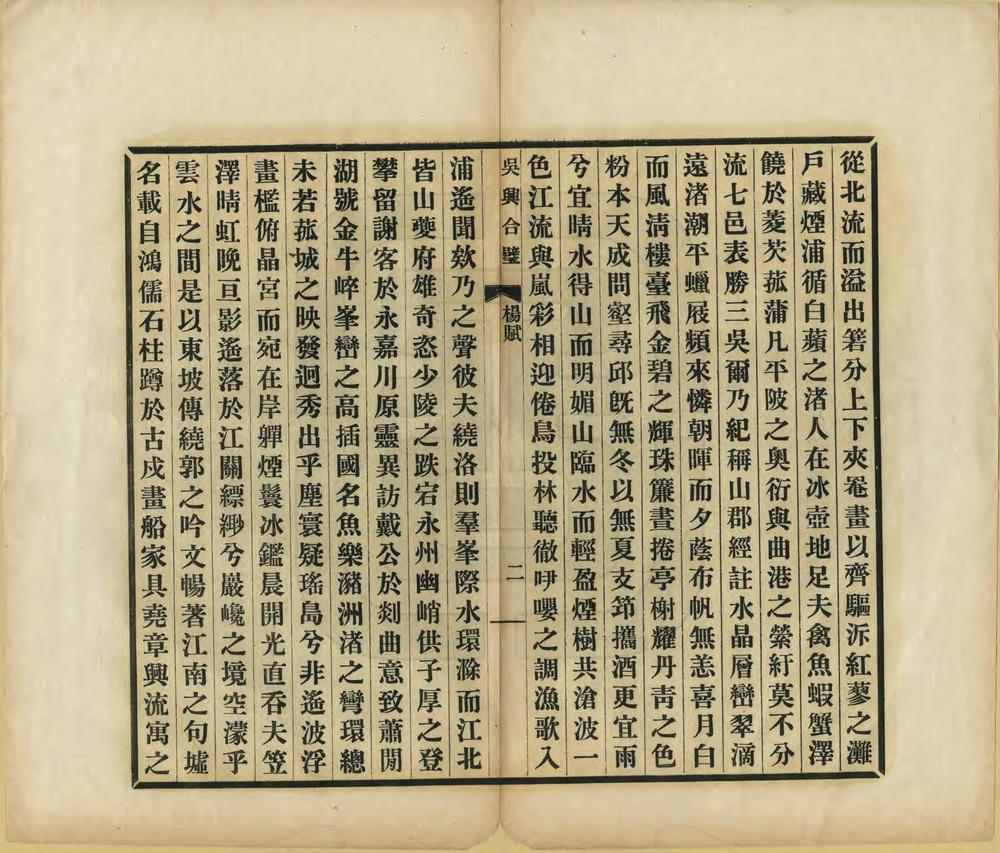 從北流而溢出箬分上下夾罨畫以齊驅泝紅蓼之灘
戶藏煙浦循白蘋之渚人在冰壺地足夫禽魚蝦蟹澤
饒於菱芡菰蒲凡平陂之奧衍與曲港之縈紆莫不分
流七邑表勝三吳爾乃紀稱山郡經註水晶層巒翠滴
遠渚潮平蠟屐頻來憐朝暉而夕蔭布帆無恙喜月白
而風淸樓臺飛金碧之輝珠簾晝捲亭榭耀丹靑之色
粉本天成問壑尋邱旣無冬以無夏支笻攜酒更宜雨
兮宜晴水得山而明媚山臨水而輕盈煙樹共滄波一
色江流與嵐彩相迎倦鳥投林聽徹吚嚶之調漁歌入
吳興合璧 楊賦 二
浦遙聞欸乃之聲彼夫繞洛則羣峯際水環滁而江北
皆山夔府雄奇恣少陵之跌宕永州幽峭供子厚之登
攀留謝客於永嘉川原靈異訪戴公於剡曲意致蕭閒
湖號金牛崪峯巒之高插國名魚樂瀦洲渚之彎環總
未若菰城之映發迥秀出乎塵寰疑瑤島兮非遙波浮
畫檻俯晶宮而宛在岸嚲煙鬟冰鑑晨開光直吞夫笠
澤晴虹晚亘影遙落於江關縹緲兮巖巉之境空濛乎
雲水之間是以東坡傳繞郭之吟文暢著江南之句墟
名載自鴻儒石柱蹲於古戍畫船家具堯章興流寓之